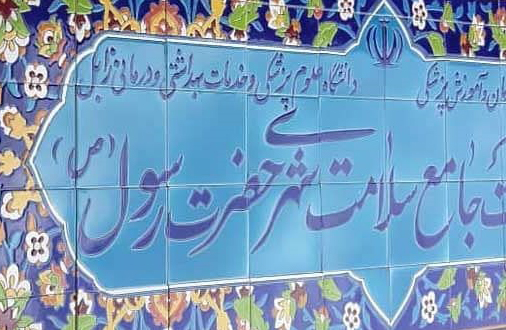 مان و آموزش پزشکی
دانشگاه علوم پزشکی و خدمات بهداشتی و درمانی زابل
ت جامع سلامت شهری حضرت رسول (ص)